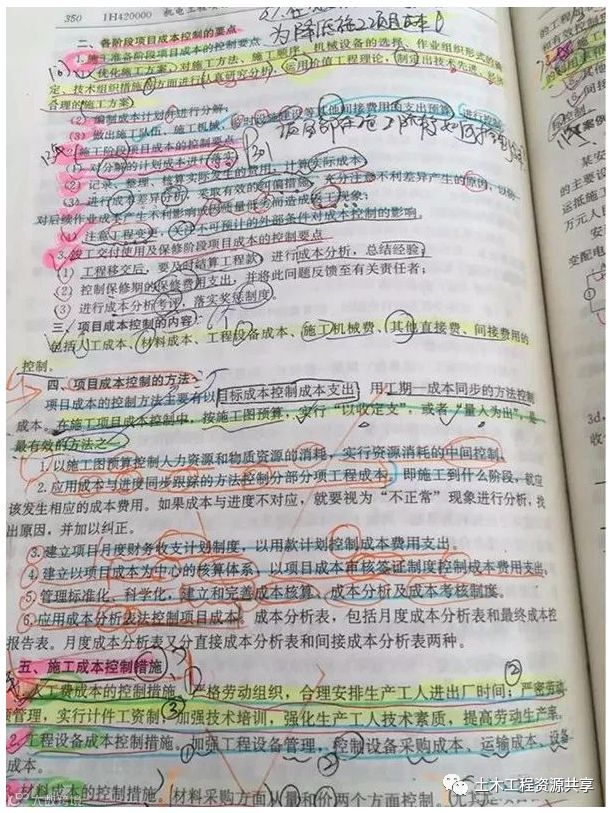 350 1H420000 机电工程项
为降低施工项目成本
二、各阶段项目成本控制的要点
1.施工准备阶段项目成本的控制要点
(1) 优化施工方案,对施工方法、施工顺序、机械设备的选择、作业组织形式的确
定、技术组织措施等方面进行认真研究分析,运用价值工程理论,制定出技术先进、经济
合理的施工方案;
(2) 编制成本计划并进行分解;
(3) 做出施工队伍、施工机械、临时设施建设等其他间接费用的支出预算,进行控制
2.施工阶段项目成本的控制要点
(1) 对分解的计划成本进行落实;
(2) 记录、整理、核算实际发生的费用,计算实际成本;
(3) 进行成本差异分析,采取有效的纠偏措施,充分注意不利差异产生的原因,以防
对后续作业成本产生不利影响或因质量低劣而造成返工现象;
(4) 注意工程变更,关注不可预计的外部条件对成本控制的影响。
3.竣工交付使用及保修阶段项目成本的控制要点
(1) 工程移交后,要及时结算工程款,进行成本分析,总结经验;
(2) 控制保修期的保修费用支出,并将此问题反馈至有关责任者;
(3) 进行成本分析考评,落实奖惩制度。
三、项目成本控制的内容
包括人工成本、材料成本、工程设备成本、施工机械费、其他直接费、间接费用的
控制。
四、项目成本控制的方法
项目成本的控制方法主要有以目标成本控制成本支出,用工期—成本同步的方法控制
成本。在施工项目成本控制中,按施工图预算,实行“以收定支”,或者“量入为出”,是
最有效的方法之一
1.以施工图预算控制人力资源和物质资源的消耗,实行资源消耗的中间控制。
2.应用成本与进度同步跟踪的方法控制分部分项工程成本。即施工到什么阶段,就应
该发生相应的成本费用。如果成本与进度不对应,就要视为“不正常”现象进行分析,找
出原因,并加以纠正。
3.建立项目月度财务收支计划制度,以用款计划控制成本费用支出。
4.建立以项目成本为中心的核算体系,以项目成本审核签证制度控制成本费用支出。
5.管理标准化、科学化,建立和完善成本核算、成本分析及成本考核制度。
6.应用成本分析表法控制项目成本。成本分析表,包括月度成本分析表和最终成本控
报告表。月度成本分析表又分直接成本分析表和间接成本分析表两种。
五、施工成本控制措施
人工费成本的控制措施。严格劳动组织,合理安排生产工人进出厂时间;严密劳动
管理,实行计件工资制;加强技术培训,强化生产工人技术素质,提高劳动生产率。
2.工程设备成本控制措施。加强工程设备管理,控制设备采购成本、运输成本、设备
成本。
3.材料成本的控制措施。材料采购方面从量和价两个方面控制。尤其
土木工程资源共享